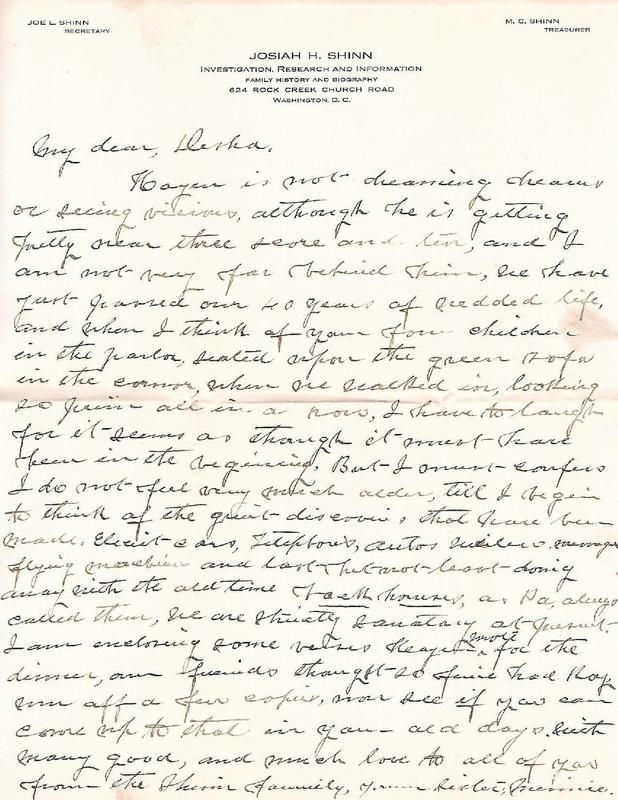 JOE L. SHINN
SECRETARY
M. C. SHINN
TREASURER
JOSIAH H. SHINN
INVESTIGATION, RESEARCH AND INFORMATION
FAMILY HISTORY AND BIOGRAPHY
624 ROCK CREEK CHURCH ROAD
WASHINGTON, D. C.
My dear,
is not dreaming dreams
or seeing visions, although he is getting
pretty near three score and ten, and I
am not very far behind him, we have
just passed our 40 years of wedded life,
and when I think of your four children
in the parlor, seated upon the green sofa
in the corner, when we walked in, looking
so prim all in a row, I have to laugh
for it seems as though it must have
been in the begining. But I must confess
I do not feel very much older, till I begin
to think of the great discovris that have been
made. Elecit cars, Telephons, autos wireless messages
flying machines and last but not least doing
away with the old time back houses, as Pa, always
called them, we are strictly sanatary at present.
I am enclosing some verses more for the
dinner, our friends thought so fine had Roy
run off a few copies, now see if you can
come up to that in your old days, with
many good, and much love to all of you
from the Shinn family, your sister, Minnie.